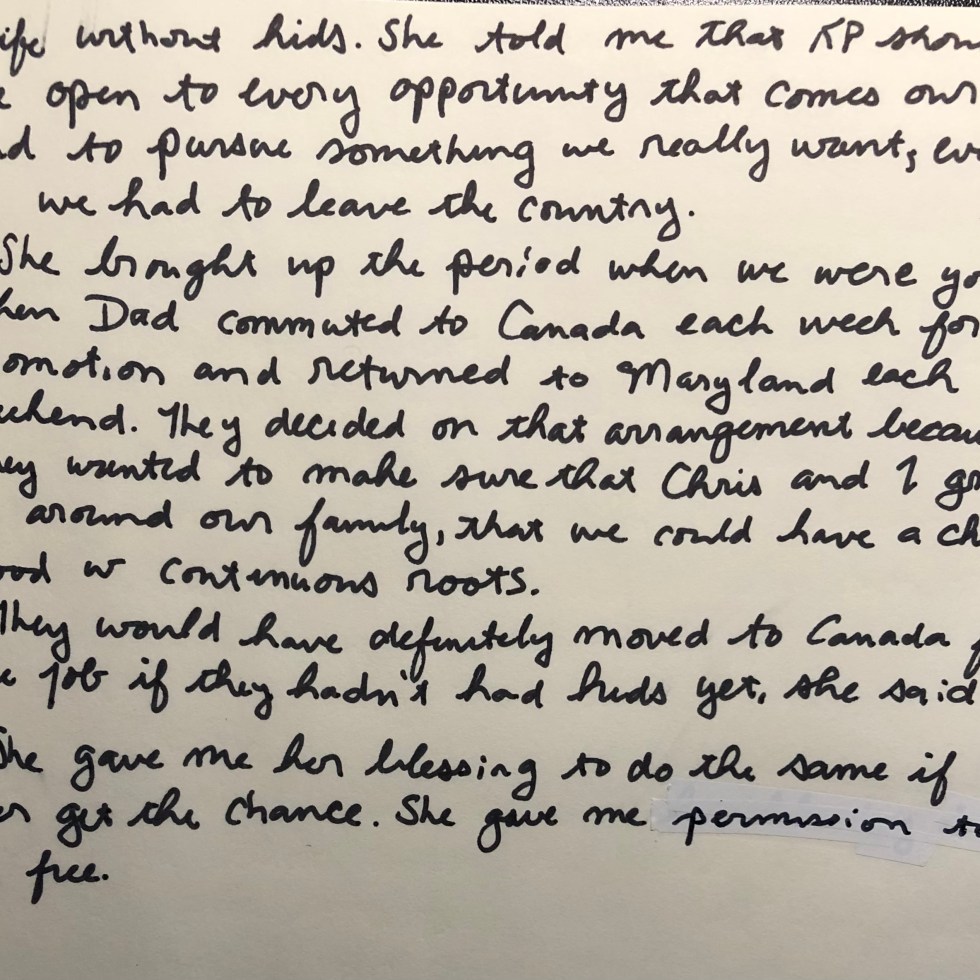 ife without kids. She told me that KP shou
e open to every opportunity that comes our
nd to pursue something we really want, ev
we had to leave the country.
She brought up the period when we were yo
hen Dad commuted to Canada each week for
omotion and returned to Maryland each
eekend. They decided on that arrangement becau
hey wanted to make sure that Chris and I gr
around our family, that we could have a ch
ood w continuous roots.
They would have definitely moved to Canada f
e job if they hadn't had kids yet, she said
She gave me her blessing to do the same if
er get the chance. She gave me permission to
free.